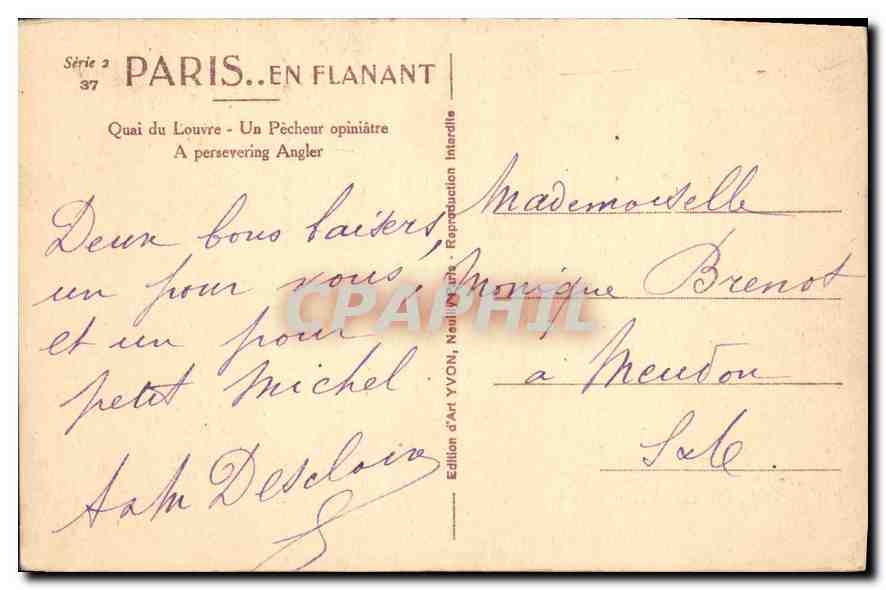 Série 2
37
PARIS..EN FLANANT
Quai du Louvre - Un Pêcheur opiniâtre
A persevering Angler
Deux bons baisers,
un pour vous,
et un pour
petit Michel
Edition d'Art YVON, Neuilly-Paris - Reproduction Interdite
Mademoiselle
Monique Brenot
à Meudon
CPAPHIL